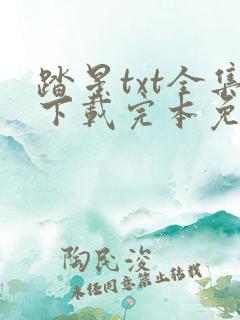 踏景txt全集
下载完本免
陶民浚
未经同意禁止转载